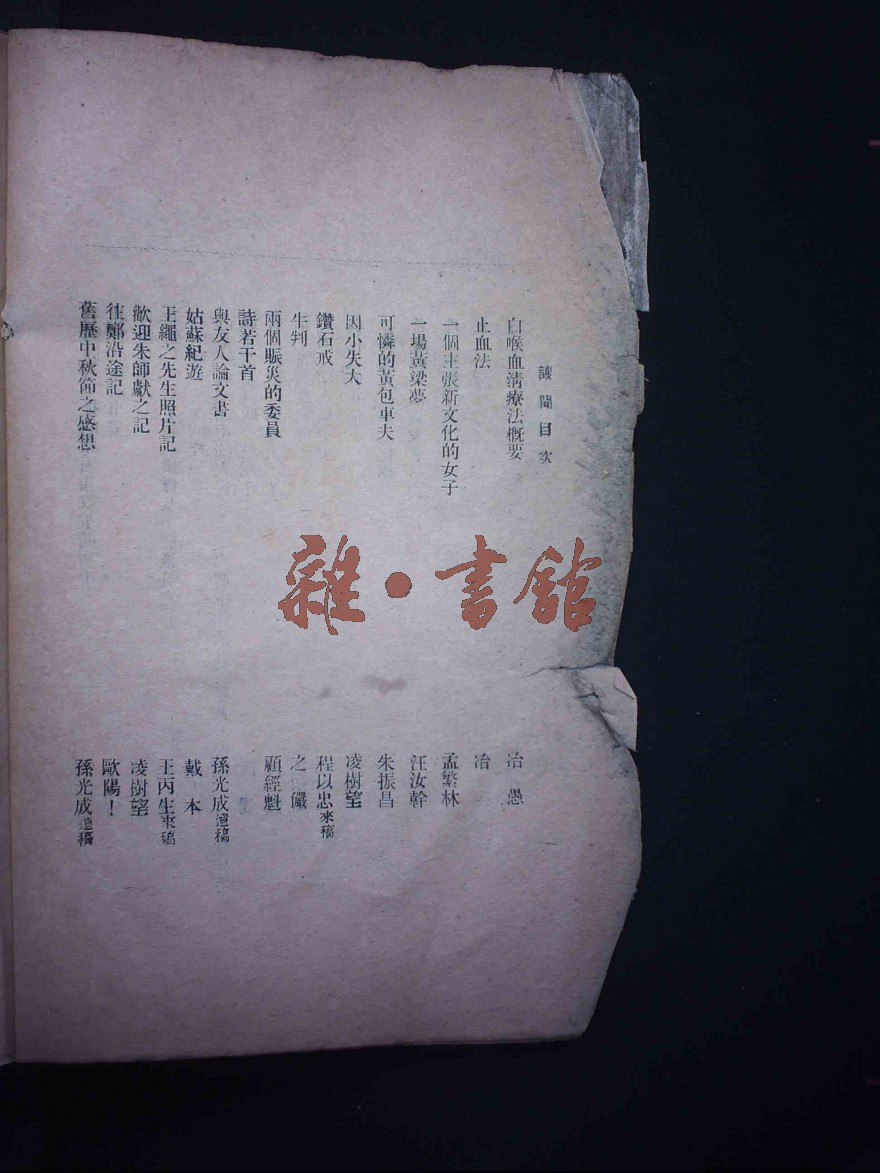 謏聞目次
白喉血淸療法概要 冶愚
止血法 冶
一個主張新文化的女子 孟繁林
一場黃梁夢 汪汝幹
可憐的黃包車夫 朱振昌
因小失大 凌樹望
鑽石戒 程以忠來稿
牛判 之儼
兩個賑災的委員 顧經魁
詩若干首
與友人論文書 孫光成遺稿
姑蘇紀遊 戴本
王繩之先生照片記 王丙生來稿
歡迎朱師獻之記 凌樹望
往鄭沿途記 歐陽！
舊歷中秋節之感想 孫光成遺稿
雜·書館